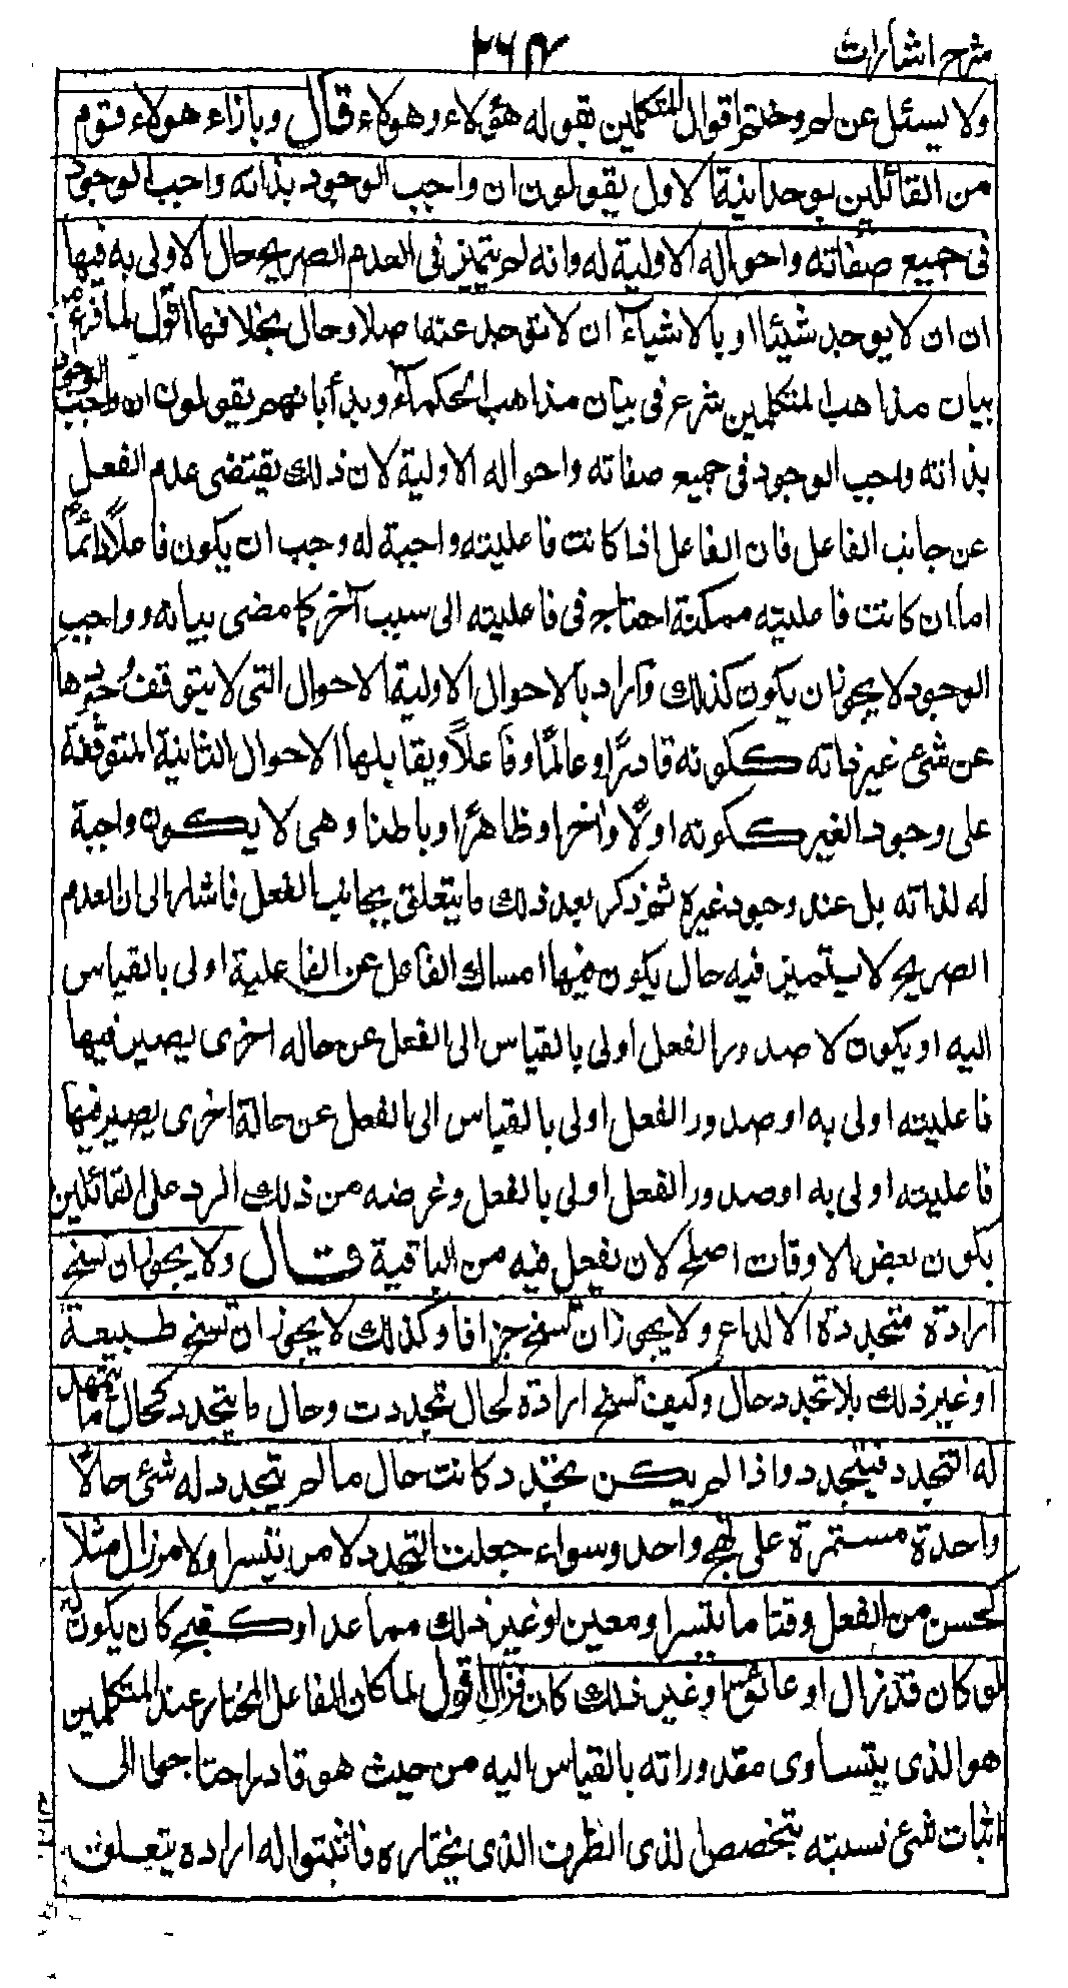 شرح اشارات
ولا يسئل عن لم وختم اقوال المتكلمين بقوله هؤلاء وهولاء قال وبازاء هولاء قوم
من القائلين بوحدانية الاول يقولون ان واجب الوجود بذاته واجب الوجود
فى جميع صفاته واحواله الاولية له وانه لم يتميز فى العدم الصريح حال الاولى به فيها
ان ان لا يوجد شيئا او بالاشياء ان لا توجد عنه اصلا وحال بخلافها اقول لما فرغ من
بيان مذاهب المتكلمين شرع فى بيان مذاهب الحكماء وبدأ بانهم يقولون ان واجب الوجود
بذاته واجب الوجود فى جميع صفاته واحواله الاولية لان ذلك يقتضى عدم الفعل
عن جانب الفاعل فان الفاعل اذا كانت فاعليته واجبة له وجب ان يكون فاعلاً دائماً
اما ان كانت فاعليته ممكنة احتاج فى فاعليته الى سبب آخر كما مضى بيانه وواجب
الوجود لا يجوز ان يكون كذلك واراد بالاحوال الاولية الاحوال التى لا يتوقف وجودها
عن شئ غير ذاته ككونه قادرًا وعالمًا وفاعلاً ويقابلها الاحوال الثانية المتوقفة
على وجود الغير ككونه اولًا واخرا وظاهرًا وباطنا وهى لا يكون واجبة
له لذاته بل عند وجود غيره ثم ذكر بعد ذلك ما يتعلق بجانب الفعل فاشار الى ان العدم
الصريح لا يتميز فيه حال يكون فيها امساك الفاعل عن الفاعلية اولى بالقياس
اليه او يكون لا صدور الفعل اولى بالقياس الى الفعل عن حاله اخرى يصير فيها
فاعليته اولى به او صدور الفعل اولى بالقياس الى الفعل عن حالة اخرى يصير فيها
فاعليته اولى به او صدور الفعل اولى بالفعل وغرضه من ذلك الرد على القائلين
بكون بعض الاوقات اصلح لان يفعل فيه من الباقية قال ولا يجوز ان تسنح
ارادة متجددة الا لداع ولا يجوز ان تسنح جزافا وكذلك لا يجوز ان تسنح طبيعة
او غير ذلك بلا تجدد حال وكيف تسنح ارادة لحال تجددت وحال ما يتجدد كحال ما يتمهد
له التجدد فيتجدد واذا لم يكن تجدد كانت حال ما لم يتجدد له شئ حالا
واحدة مستمرة على نهج واحد وسواء جعلت التجدد لامر تيسر او لامر زال مثلا
كحسن من الفعل وقتا ما تيسر او معين او غير ذلك مما عد او كقبح كان يكون له
لو كان قد زال او عائق او غير ذلك كان فزال اقول لما كان الفاعل المختار عند المتكلمين
هو الذى يتساوى مقدوراته بالقياس اليه من حيث هو قادر احتاجوا الى
اثبات شئ نسبته بتخصص لذى الطرف الذى يختاره فاثبتوا له ارادة يتعلق